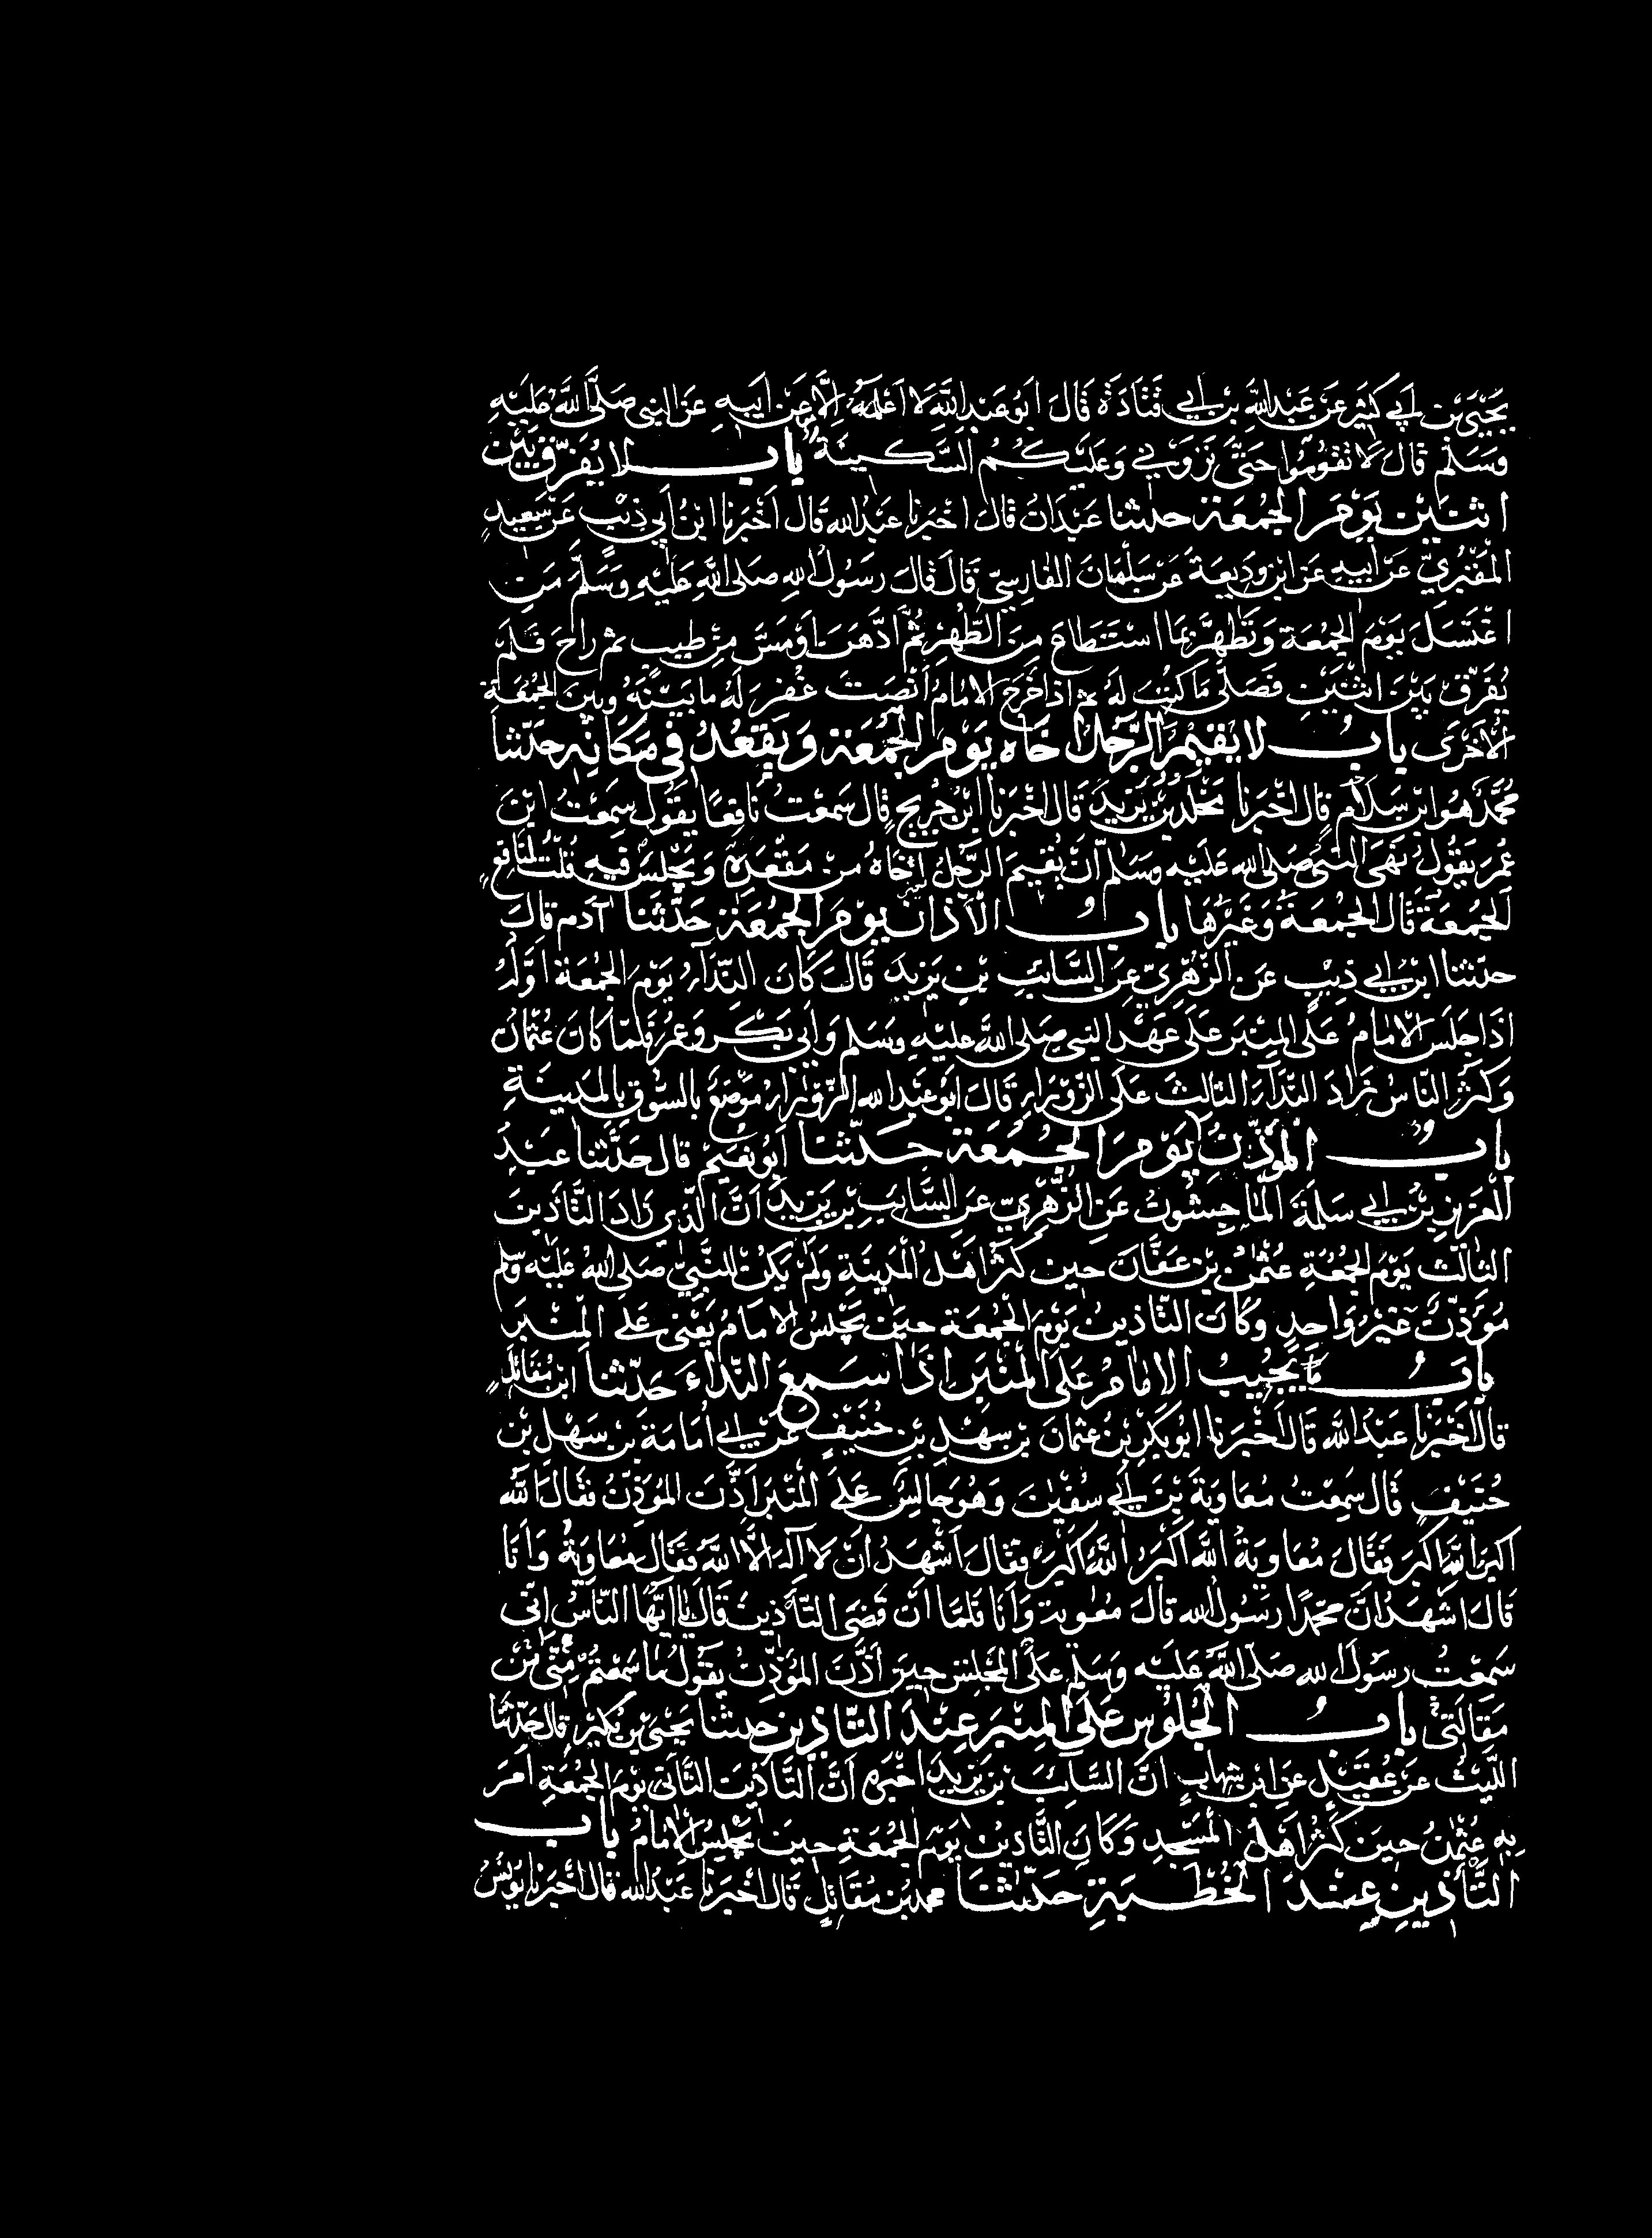 يَحْيَى بْن اَبِي كَثِيْرٍ عَنْ عَبْدِ اللهِ بن اَبِي قَتَادَةَ قَالَ اَبُو عَبْدِ اللهِ لَا اَعْلَمُهُ اِلَّا عَنْ اَبِيهِ عَنِ النبي صَلَّى اللهُ عَلَيْهِ
وَسَلَّمَ قَالَ لَا تَقُومُوا حَتَّى تَرَوْنِي وَعَلَيْكُمُ السَّكِينَةُ باب لا يُفَرِّق بَيْنَ
اثنَيْنِ يَوْمَ الجُمعَة حدثنا عَبْدَانُ قَالَ اخْبَرَنا عَبْدُ الله قَالَ اَخْبَرَنا ابْنُ اَبِي ذِئْبٍ عَنْ سَعِيدٍ
الْمَقْبُرِيِّ عَنْ اَبِيهِ عَن ابْنِ وَدِيعَةَ عَنْ سَلْمَانَ الفَارِسِيِّ قَالَ قَالَ رسَولُ اللهِ صَلَى اللهُ عَلَيْهِ وَسَلَّمَ مَنِ
اغْتَسَلَ يَوْمَ الجُمُعَةِ وَتَطَهَّرَ بِمَا اسْتَطَاعَ مِنَ الطُّهْرِ ثُمَّ ادَّهَنَ اَوْ مَسَّ مِنْ طِيبٍ ثم رَاحَ فَلَمْ
يُفَرِّقْ بَيْنَ اثْنَيْنِ فَصَلَّى مَا كُتِبَ لَهُ ثم اذا خَرَجَ الامَامُ اَنْصَتَ غُفِرَ لَهُ ما بَيْنَهُ وبين الجُمُعَةِ
الاُخْرَى باب لا يُقيمُ الرَّجُلُ اخَاه يَوْم الجُمُعَة وَيَقْعُدُ فِي مَكَانِه حَدّثنا
مُحَمَّدٌ هُوَ ابْن سَلَامٍ قَالَ اَخْبَرَنا مَخْلَدُ بْنُ يَزِيدَ قَالَ اخْبَرَنا ابْنُ جُرَيجٍ قَالَ سَمعْتُ نَافِعًا يَقُولُ سَمِعْتُ ابْنَ
عُمَرَ يَقُولُ نَهَى النَبيُّ صَلى الله عَلَيْه وَسَلم اَنْ يُقِيمَ الرَّجُلُ اَخَاهُ مِنْ مَقْعَدِهِ وَيَجْلِسَ فِيهِ قُلْتُ لِنَافِعٍ
الجُمُعَةَ قَالَ الجُمعَةَ وَغَيْرَهَا بابُ الاَذان يوْمَ الجُمعَةِ حَدَّثَنَا آدَم قَالَ
حدثنا ابْنُ اَبِي ذِئْبٍ عَن الزُّهْرِيّ عَنِ السَّائِبِ بْنِ يَزِيدَ قَالَ كَانَ النِّدَاءُ يَوْمَ الجُمُعَة اَوَّلُهُ
اذَا جَلَسَ الامَامُ عَلَى المِنْبَر عَلَى عَهْدِ النبي صَلى اللهُ عَليْهِ وسَلم وَاَبي بَكْرٍ وَعُمَرَ فَلَمّا كَانَ عُثمَانُ
وَكَثُرَ النَّاسُ زَادَ النِّدَاءَ الثالِثَ عَلَى الزَّوْرَاءِ قَالَ اَبُو عَبْد الله الزَّوْرَاءُ مَوْضِعٌ بالسُّوقِ بِالمَدِينَةِ
بابُ المُؤَذِّنُ يَوْمَ الجُمُعَة حَدَّثَنا اَبُو نُعَيْمٍ قال حَدَّثَنَا عَبْدُ
العَزِيزِ بْنُ اَبِي سَلَمَةَ المَاجِشُونُ عَنِ الزُّهْرِيّ عَنِ السَّائِبِ بْنِ يَزِيدَ اَنَّ الَّذِي زَادَ التَّاْذِينَ
الثالِثَ يَوْمَ الجُمُعَةِ عُثْمَنُ بْنُ عَفَّانَ حين كَثُرَ اَهْلُ المَدِينَةِ وَلَمْ يَكُنْ للنَّبِيِّ صَلى اللهُ عَلَيْه وَسَلَّم
مُؤَذِّنٌ غَيْرُ وَاحِدٍ وَكَانَ التَّاذِينُ يَوْمَ الْجُمعَة حِينَ يَجْلِسُ الامَامُ يَعْني عَلى المِنْبَرِ
بابُ مَا يُجِيبُ الاِمَامُ عَلَى المِنْبَر اذَا سَمِعَ النّداءَ حَدّثنا ابْن مُقَاتِلٍ
قالَ اَخْبَرَنا عَبْدُ الله قَالَ اَخْبَرَنا ابُو بَكْرِ بْنُ عُثمَانَ بْنِ سهْلِ بْنِ حُنَيْفٍ عَنْ اَبِي اُمَامَةَ بْنِ سَهْلِ بْنِ
حُنَيْفٍ قَال سَمِعْتُ مُعَاويَةَ بْنَ اَبِي سُفْيَنَ وَهُوَ جَالِسٌ عَلَى المْنْبَرِ اَذَّنَ المُؤَذِّنُ فَقَالَ اللهُ
اكبَرُ اللهُ اَكْبَرُ فَقَالَ مُعَاويَةُ اللهُ اَكْبَرُ اللهُ اَكْبَرُ فَقَالَ اَشْهَدُ اَنْ لَا الَهَ الَّا اللهُ فَقَالَ مُعَاوِيَةُ وَاَنَا
قَالَ اشْهَدُ اَنَّ مُحَمّدًا رسَولُ الله قَالَ مُعَوِيَة وَاَنَا فَلَمَّا اَنْ قَضَى التَّاْذِينَ قَالَ يَا اَيُّهَا النَّاسُ انِّي
سَمِعْتُ رسَوْلَ اللهِ صَلَى اللهُ عَلَيْه وَسَلم عَلَى المَجْلِسِ حِينَ اَذَّنَ المُؤَذِّنُ يَقُولُ مَا سَمِعْتُمْ مِنِّي مِنْ
مَقَالَتِي بابُ الْجُلُوسِ عَلَى المِنْبَر عِنْدَ التَّاذِين حدثنا يَحْيَى بْنُ بُكَيْر قَالَ حَدّثَنَا
اللَّيْثُ عَنْ عُقَيْلٍ عَن ابْنِ شِهَابٍ اَنَّ السَّائِبَ بْنَ يَزِيدَ اَخْبَرَه اَنَّ التَّاْذِينَ الثَّانَي يَوْمَ الجُمُعَةِ اَمَرَ
بِهِ عُثْمَنُ حِينَ كَثُرَ اَهْلُ المَسْجِدِ وَكَانَ التَّاْذِينُ يَوْمَ الجُمُعَةِ حِينَ يَجْلِسُ الامَامُ باب
التَّاْذِينِ عِنْدَ الْخُطْبَةِ حَدّثَنَا محمد بْن مُقَاتِلٍ قَالَ اَخْبَرَنا عَبْدُ الله قَال اَخْبَرَنا يُونُسُ